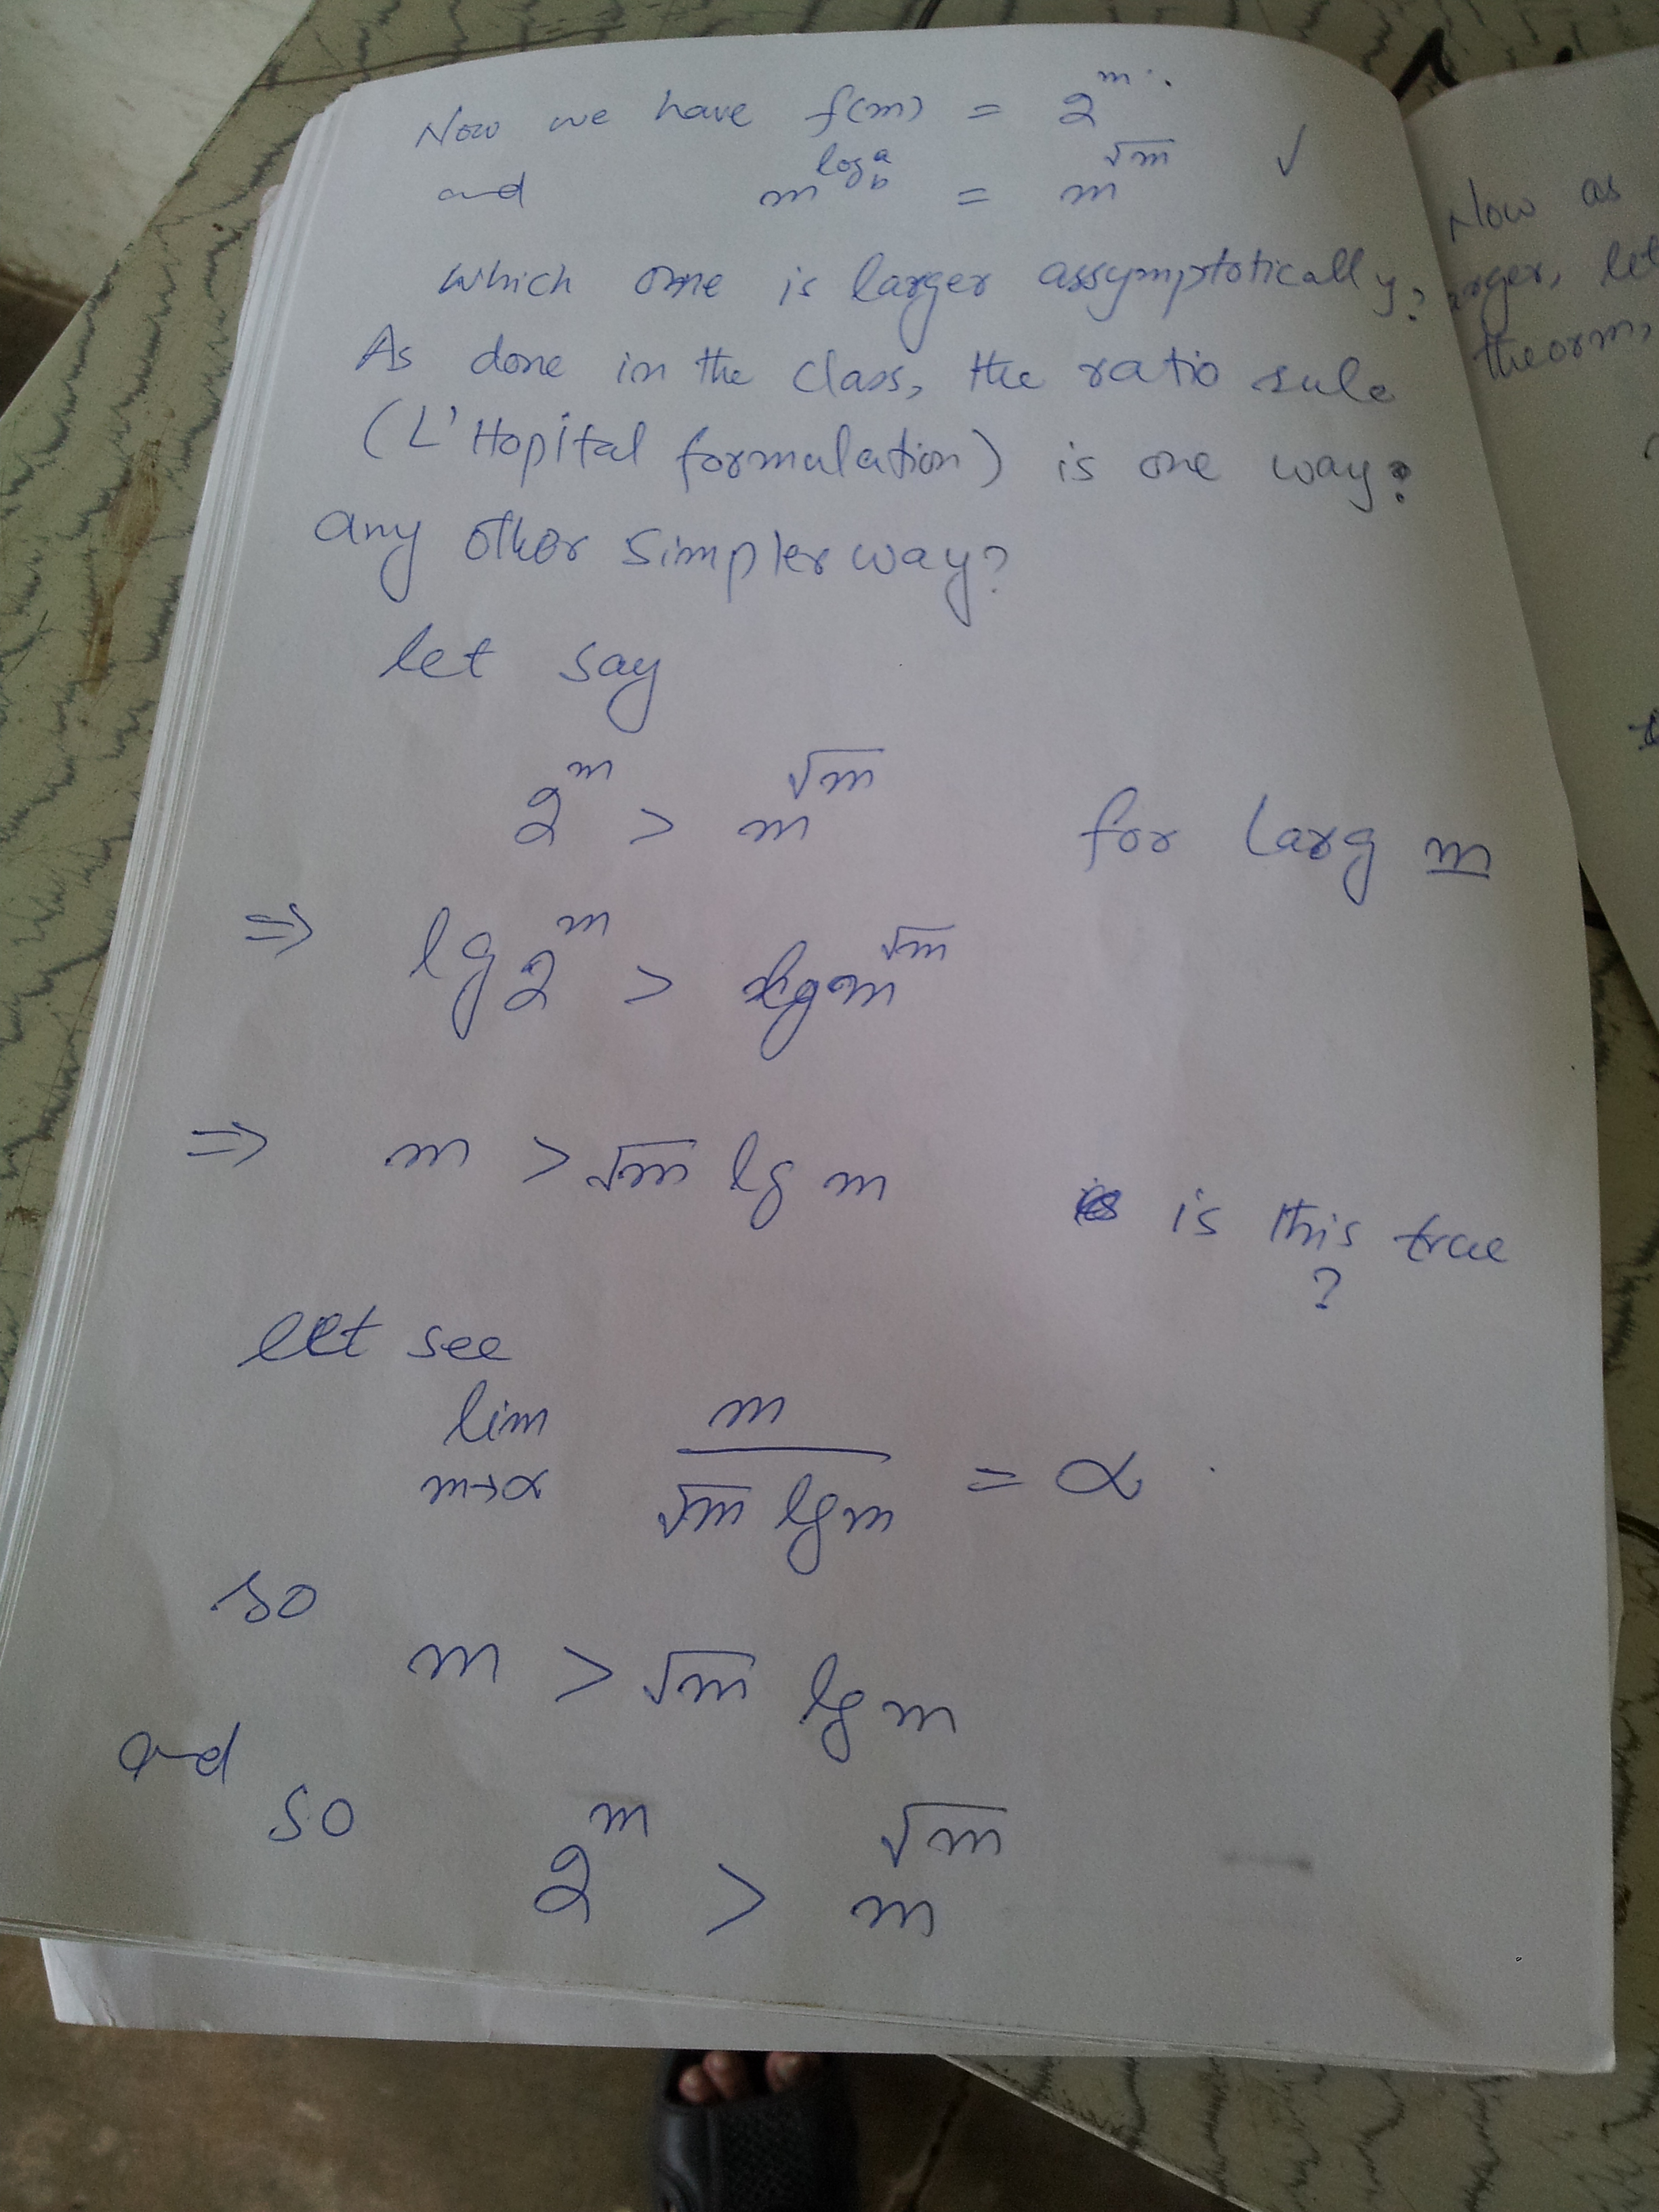 Now we have f(m) = 2^m.
and m^{log_b a} = m^{√m} ✓
which one is larger assymptotically?
As done in the class, the ratio rule
(L'Hopital formulation) is one way?
any other simpler way?
let say
2^m > m^{√m} for larg m
⇒ lg 2^m > lg m^{√m}
⇒ m > √m lg m is this true ?
let see
lim m→∞ m / (√m lg m) = ∞.
so m > √m lg m
and so 2^m > m^{√m}
Now as
theorm,